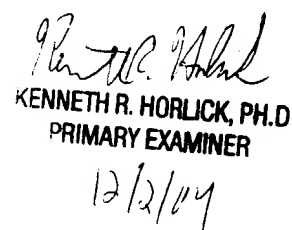 Kenneth R. Horlick
KENNETH R. HORLICK, PH.D
PRIMARY EXAMINER
12/2/04